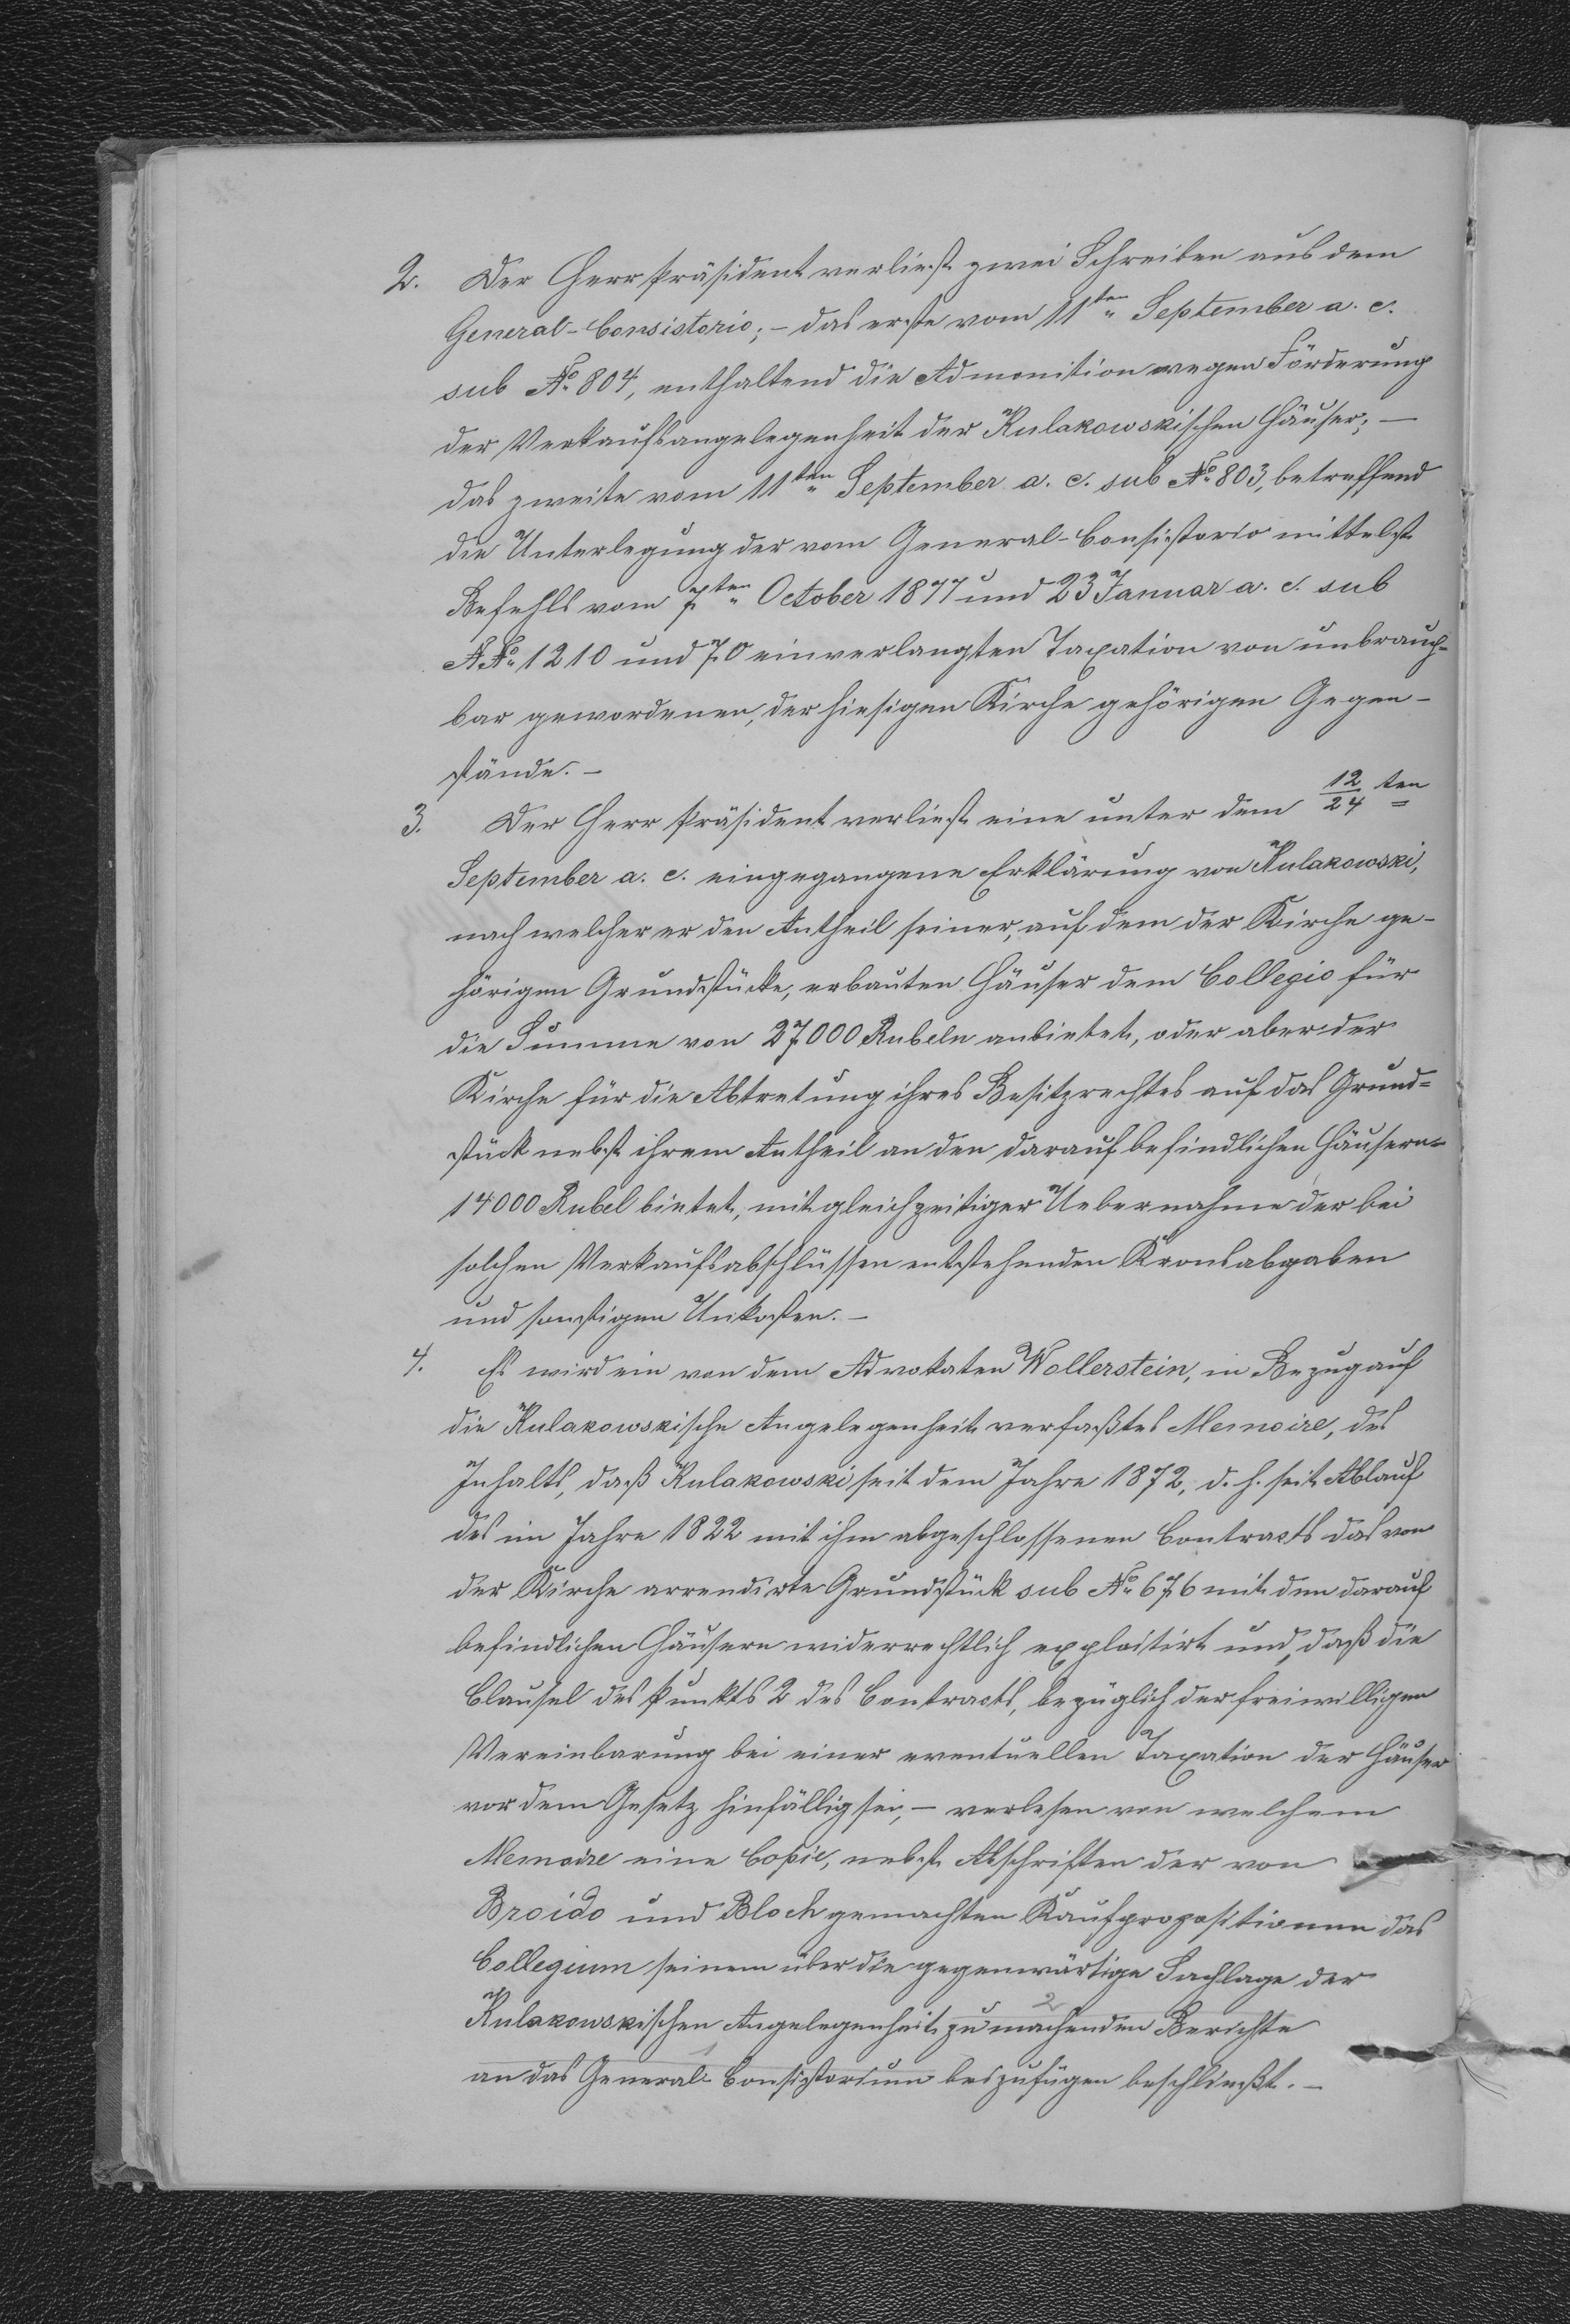 2. Der Herr Präsident verliest zwei Schreiben aus dem
General-Consistorio; – das erste vom 11ten September a. c.
sub No. 804, enthaltend die Admonition wegen Förderung
der Verkaufsangelegenheit der Kulakowskischen Häuser; –
das zweite vom 11ten September a. c. sub No. 803, betreffend
die Unterlegung der vom General-Consistorio mittelst
Befehls vom 7ten October 1877 und 23 Januar a. c. sub
NNo. 1210 und 70 einverlangten Taxation von unbrauch-
bar gewordenen, der hiesigen Kirche gehörigen Gegen-
stände. –
3. Der Herr Präsident verliest eine unter dem 12/24 ten
September a. c. eingegangene Erklärung von Kulakowski,
nach welcher er den Antheil seiner, auf dem der Kirche ge-
hörigen Grundstücke, erbauten Häuser dem Collegio für
die Summe von 27000 Rubeln anbietet, oder aber der
Kirche für die Abtretung ihres Besitzrechtes auf das Grund-
stück nebst ihrem Antheil an den darauf befindlichen Häusern
14000 Rubel bietet, mit gleichzeitiger Uebernahme der bei
solchen Verkaufsabschlüssen entstehenden Kronsabgaben
und sonstigen Unkosten. –
4. Es wird ein von dem Advokaten Wollerstein, in Bezug auf
die Kulakowskische Angelegenheit verfaßtes Memoire, des
Inhalts, daß Kulakowski seit dem Jahre 1872, d. h. seit Ablauf
des im Jahre 1822 mit ihm abgeschlossenen Contracts das von
der Kirche arrendirte Grundstück sub No. 676 mit den darauf
befindlichen Häusern widerrechtlich exploitirt und, daß die
Clausel des Punkts 2 des Contracts, bezüglich der freiwilligen
Vereinbarung bei einer eventuellen Taxation der Häuser
vor dem Gesetz hinfällig sei, – verlesen von welchem
Memoire eine Copie, nebst Abschriften der von
Broido und Bloch gemachten Kaufpropositionen das
Collegium seinem über die gegenwärtige Sachlage der
2
Kulakowskischen Angelegenheit zu machenden Berichte
1
an das General-Consistorium beizufügen beschließt. –